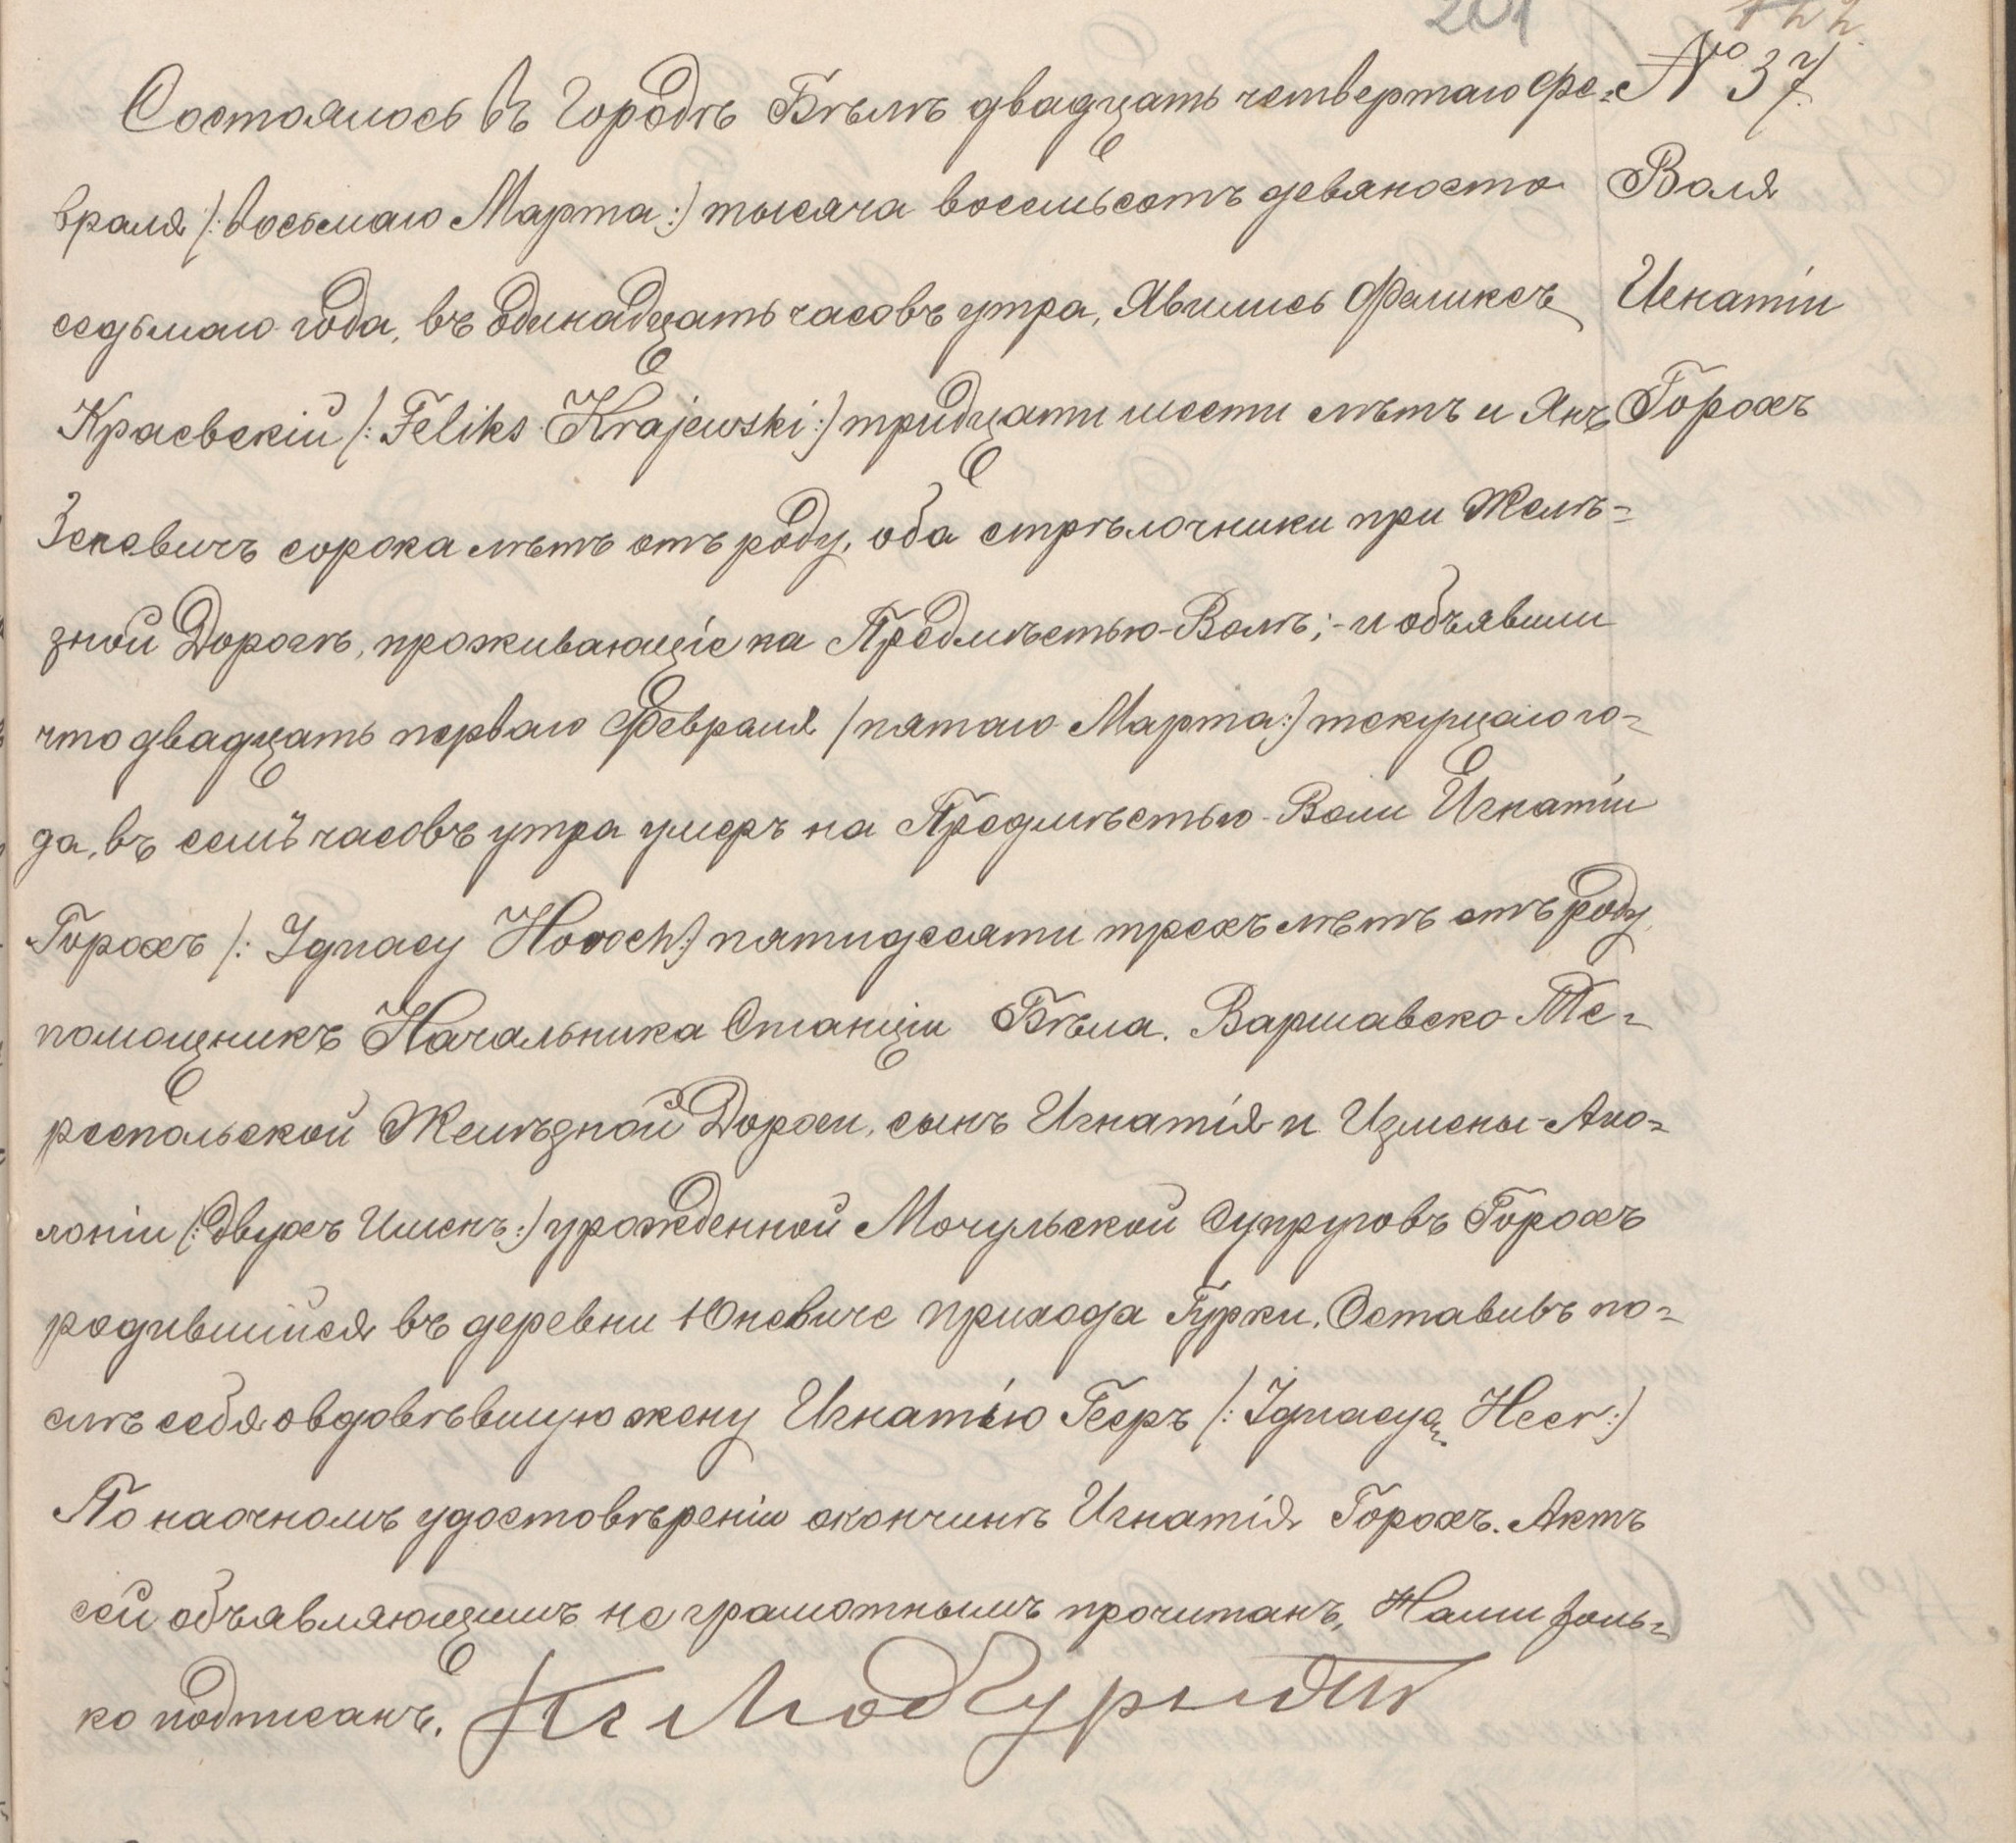 201
122
№ 37.
Воля
Игнатiи
Горохъ
Состоялось въ Городѣ Бѣлѣ двадцать четвертаго Фе=
враля /: восьмаго Марта :/ тысяча восемьсотъ девяносто
седьмаго года, въ одинадцать часовъ утра, Явились Фэликсъ
Краевскiй /: Feliks Krajewski :/ тридцати шести лѣтъ и Янъ
сорока лѣтъ отъ роду, оба стрѣлочники при Желѣ=
зной Дорогѣ, проживающiе на Предмѣстью-Волѣ;- и объявили
что двадцать перваго Февраля / пятаго Марта :/ текущаго го=
да, въ семь часовъ утра умеръ на Предмѣстью-Воли Игнатiи
Горохъ /: Ignacy Horoch :/ пятидесяти трехъ лѣтъ отъ роду,
помощникъ Начальника Станцiи Бѣла. Варшавско-Те=
респольской Желѣзной Дороги, сынъ Игнатiя и Измены-Апо=
лонiи /: двухъ Именъ :/ урожденной Мочульской Супруговъ Горохъ
родившiйся въ деревни Юневиче прихода Гурки. Оставивъ по=
слѣ себя овдовѣвшую жену Игнатiю Гееръ /: Ignacyą Heer :/
По наочномъ удостовѣренiи окончинѣ Игнатiя Горохъ. Актъ
сей объявляющимъ не грамотнымъ прочитанъ, Нами толь=
ко подписанъ.